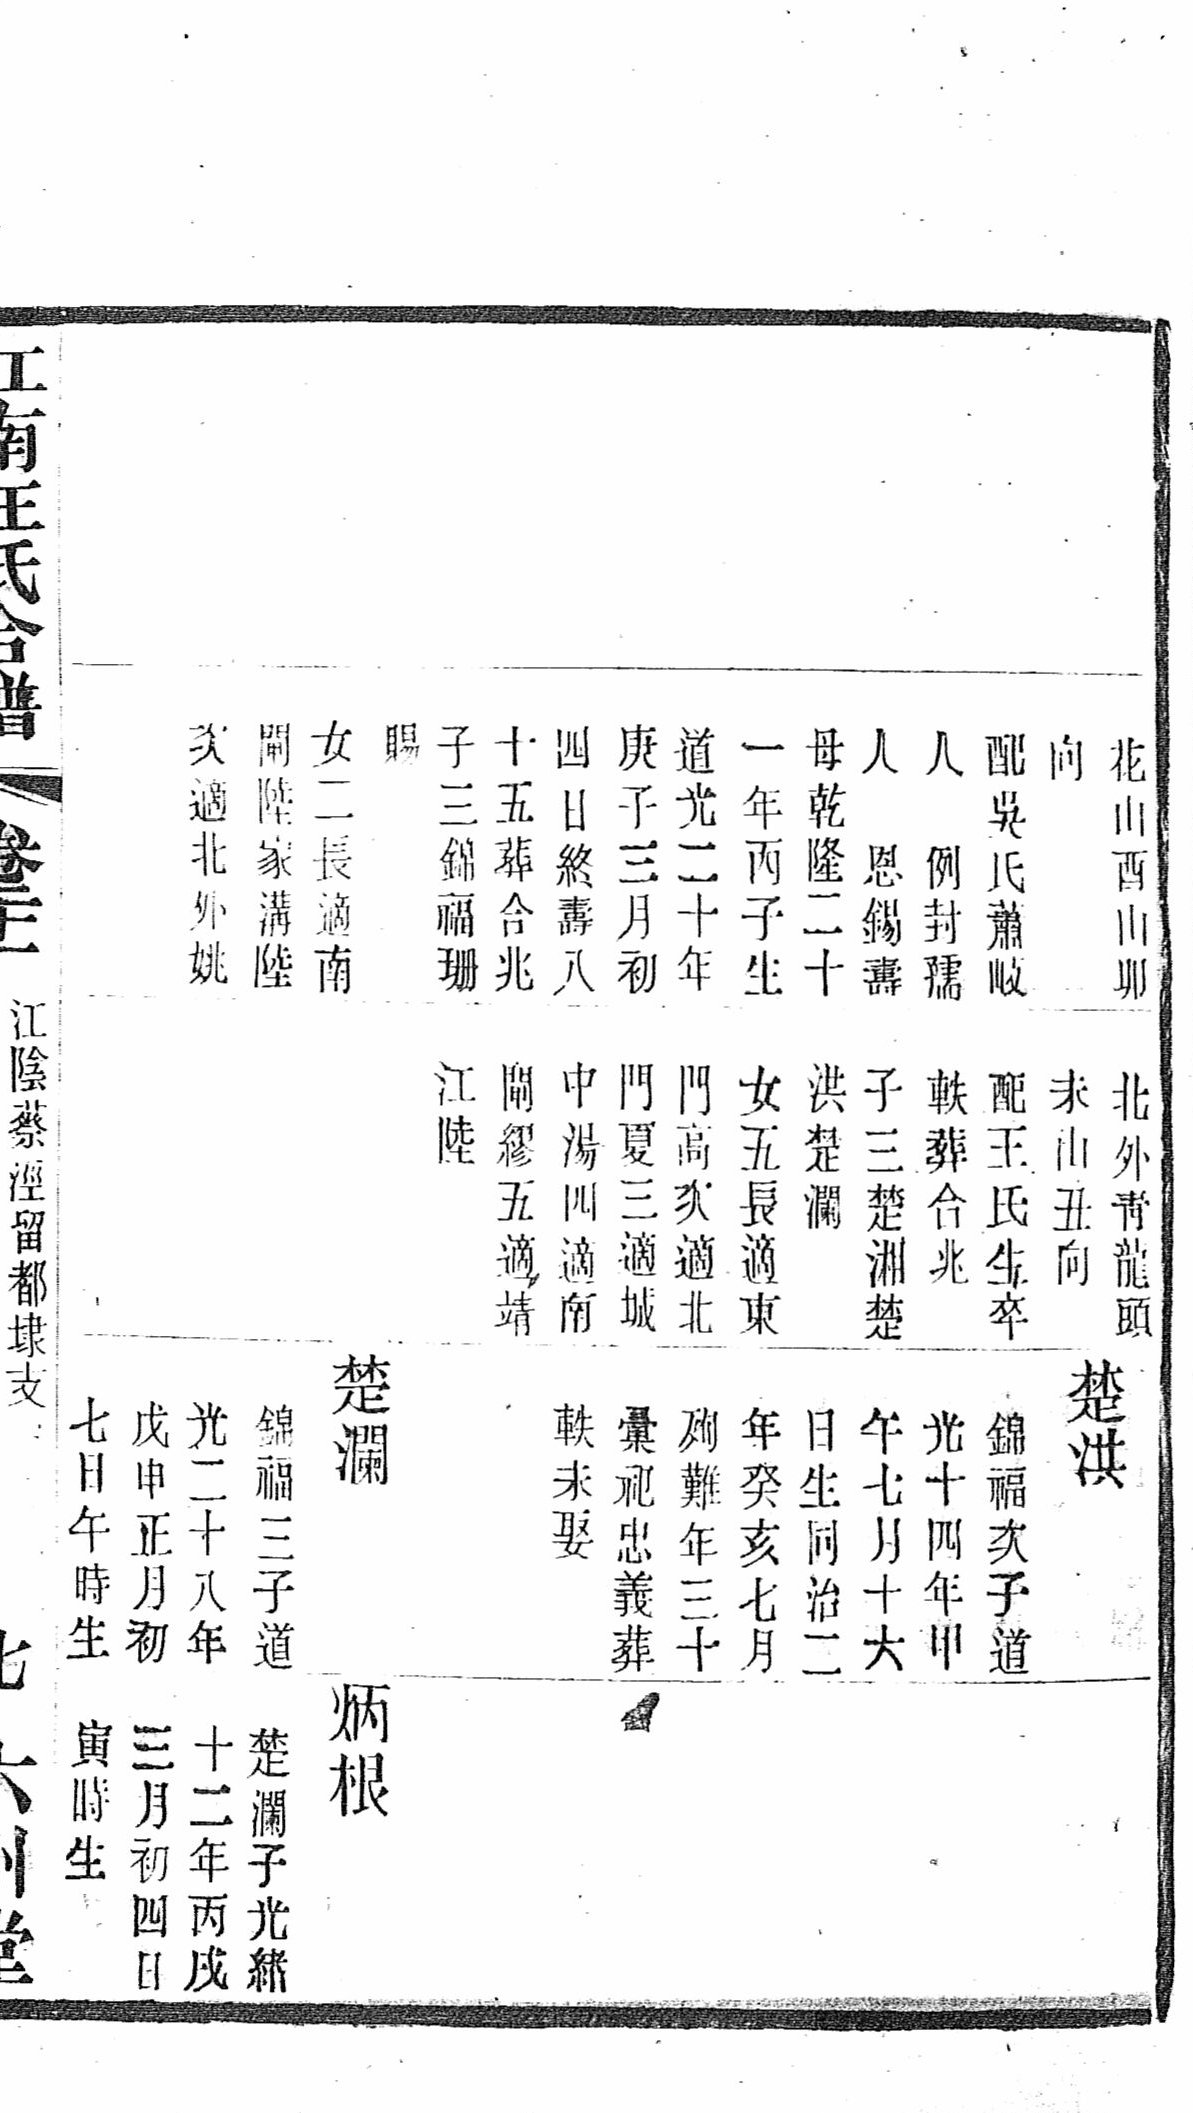 花山酉山卯
向
配吳氏蕭岐
人　例封孺
人　恩錫壽
母乾隆二十
一年丙子生
道光二十年
庚子三月初
四日終壽八
十五葬合兆
子三錦福珊
賜
女二長適南
閘陸家溝陸
次適北外姚
北外青龍頭
未山丑向
配王氏生卒
軼葬合兆
子三楚湘楚
洪楚瀾
女五長適東
門高次適北
門夏三適城
中湯四適南
閘繆五適靖
江陸
楚洪
錦福次子道
光十四年甲
午七月十六
日生同治二
年癸亥七月
殉難年三十
彙祀忠義葬
軼未娶
楚瀾
錦福三子道
光二十八年
戊申正月初
七日午時生
炳根
楚瀾子光緒
十二年丙戌
三月初四日
寅時生
江南汪氏合譜
江陰蔡涇留都埭支
六州堂